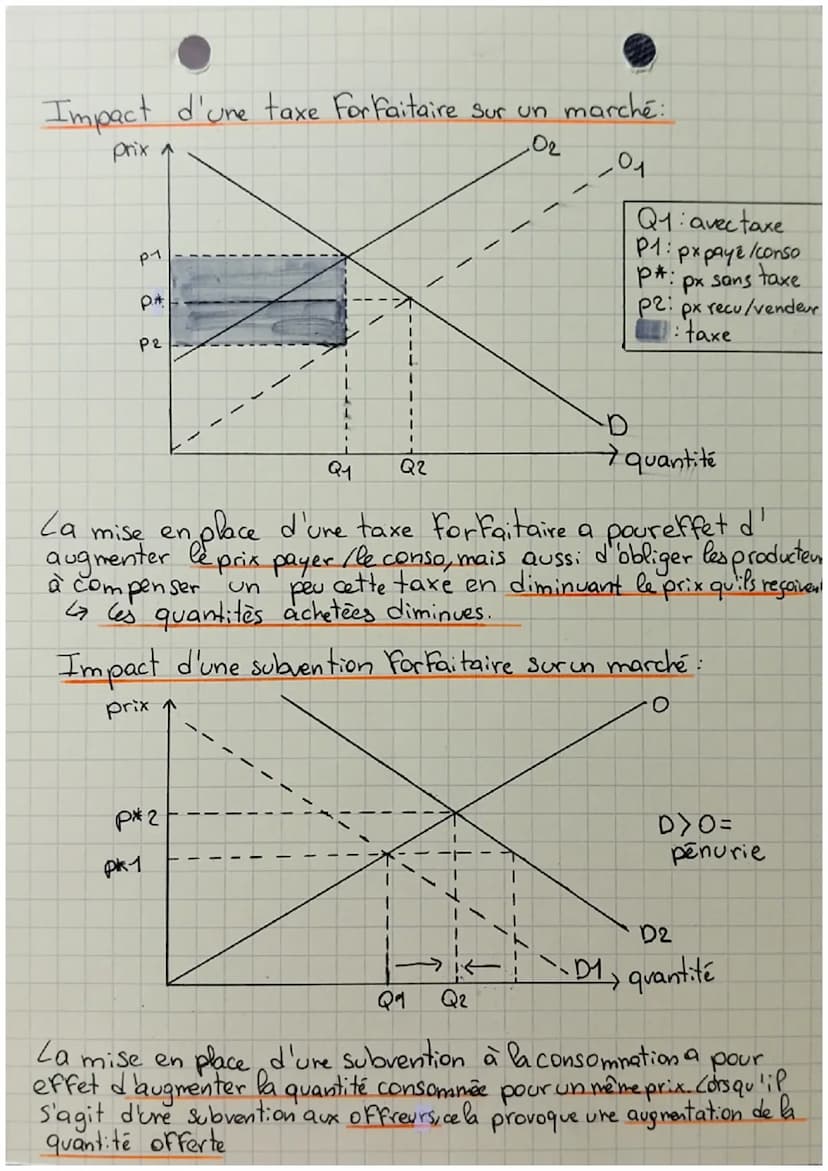 Impact d'une taxe forfaitaire sur un marché:
prix
O2
O1
Q1: avec taxe
P1: px payé/conso
P*: px sans taxe
P2: px recu/vendeur
: taxe
P1
P*
P2
D
quantité
Q1
Q2
La mise en place d'une taxe forfaitaire a pour effet d'
augmenter le prix payer/le conso, mais aussi d'obliger les producteur
à compenser un peu cette taxe en diminuant le prix qu'ils reçoivent
↳ les quantités achetées diminues.
Impact d'une subvention forfaitaire sur un marché:
prix
O
P*2
D>O=
pénurie
P*1
D2
D1
quantité
Q1
Q2
La mise en place d'une subvention à la consomnation a pour
effet d'augmenter la quantité consommée pour un même prix. Lorsqu'il
s'agit d'une subvention aux offreurs, cela provoque une augmentation de la
quantité offerte